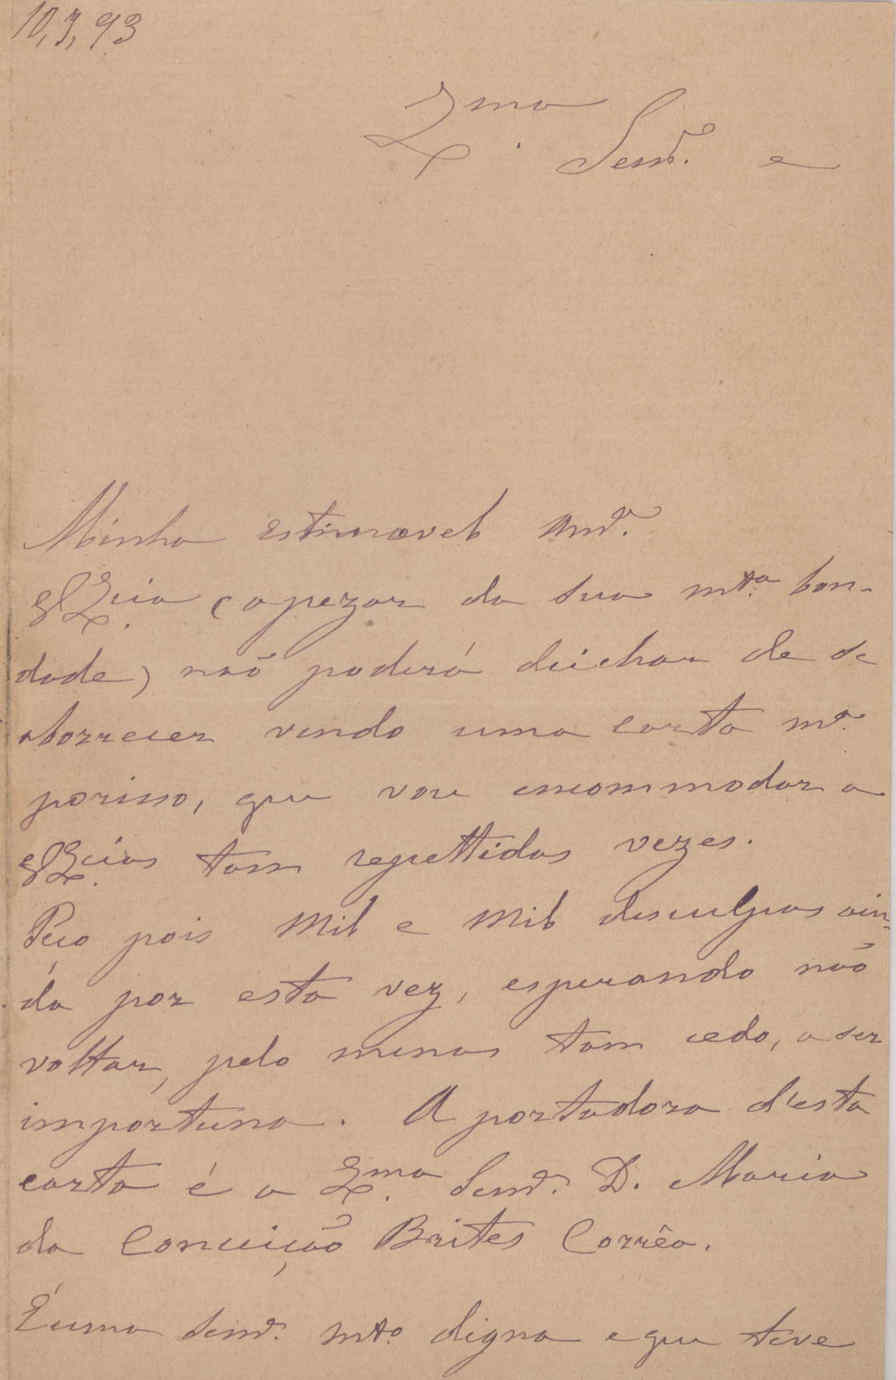 10,3,93
Exma
Senrª. e
Minha estimavel Amª.
VExcia (apezar da sua mtª. bon-
dade) naõ poderá deichar de se
aborrecer vendo uma carta mª.
porisso, que vou encommodar a
VExcias tam repettidas vezes.
Peço pois mil e mil desculpas ain-
da por esta vez, esperando naõ
voltar, pelo menos tam cedo, a ser
importuna. A portadora d'esta
carta é a Exma. Senrª. D. Maria
da Conceição Brites Corrêa.
É uma Senrª. mtº. digna e que teve